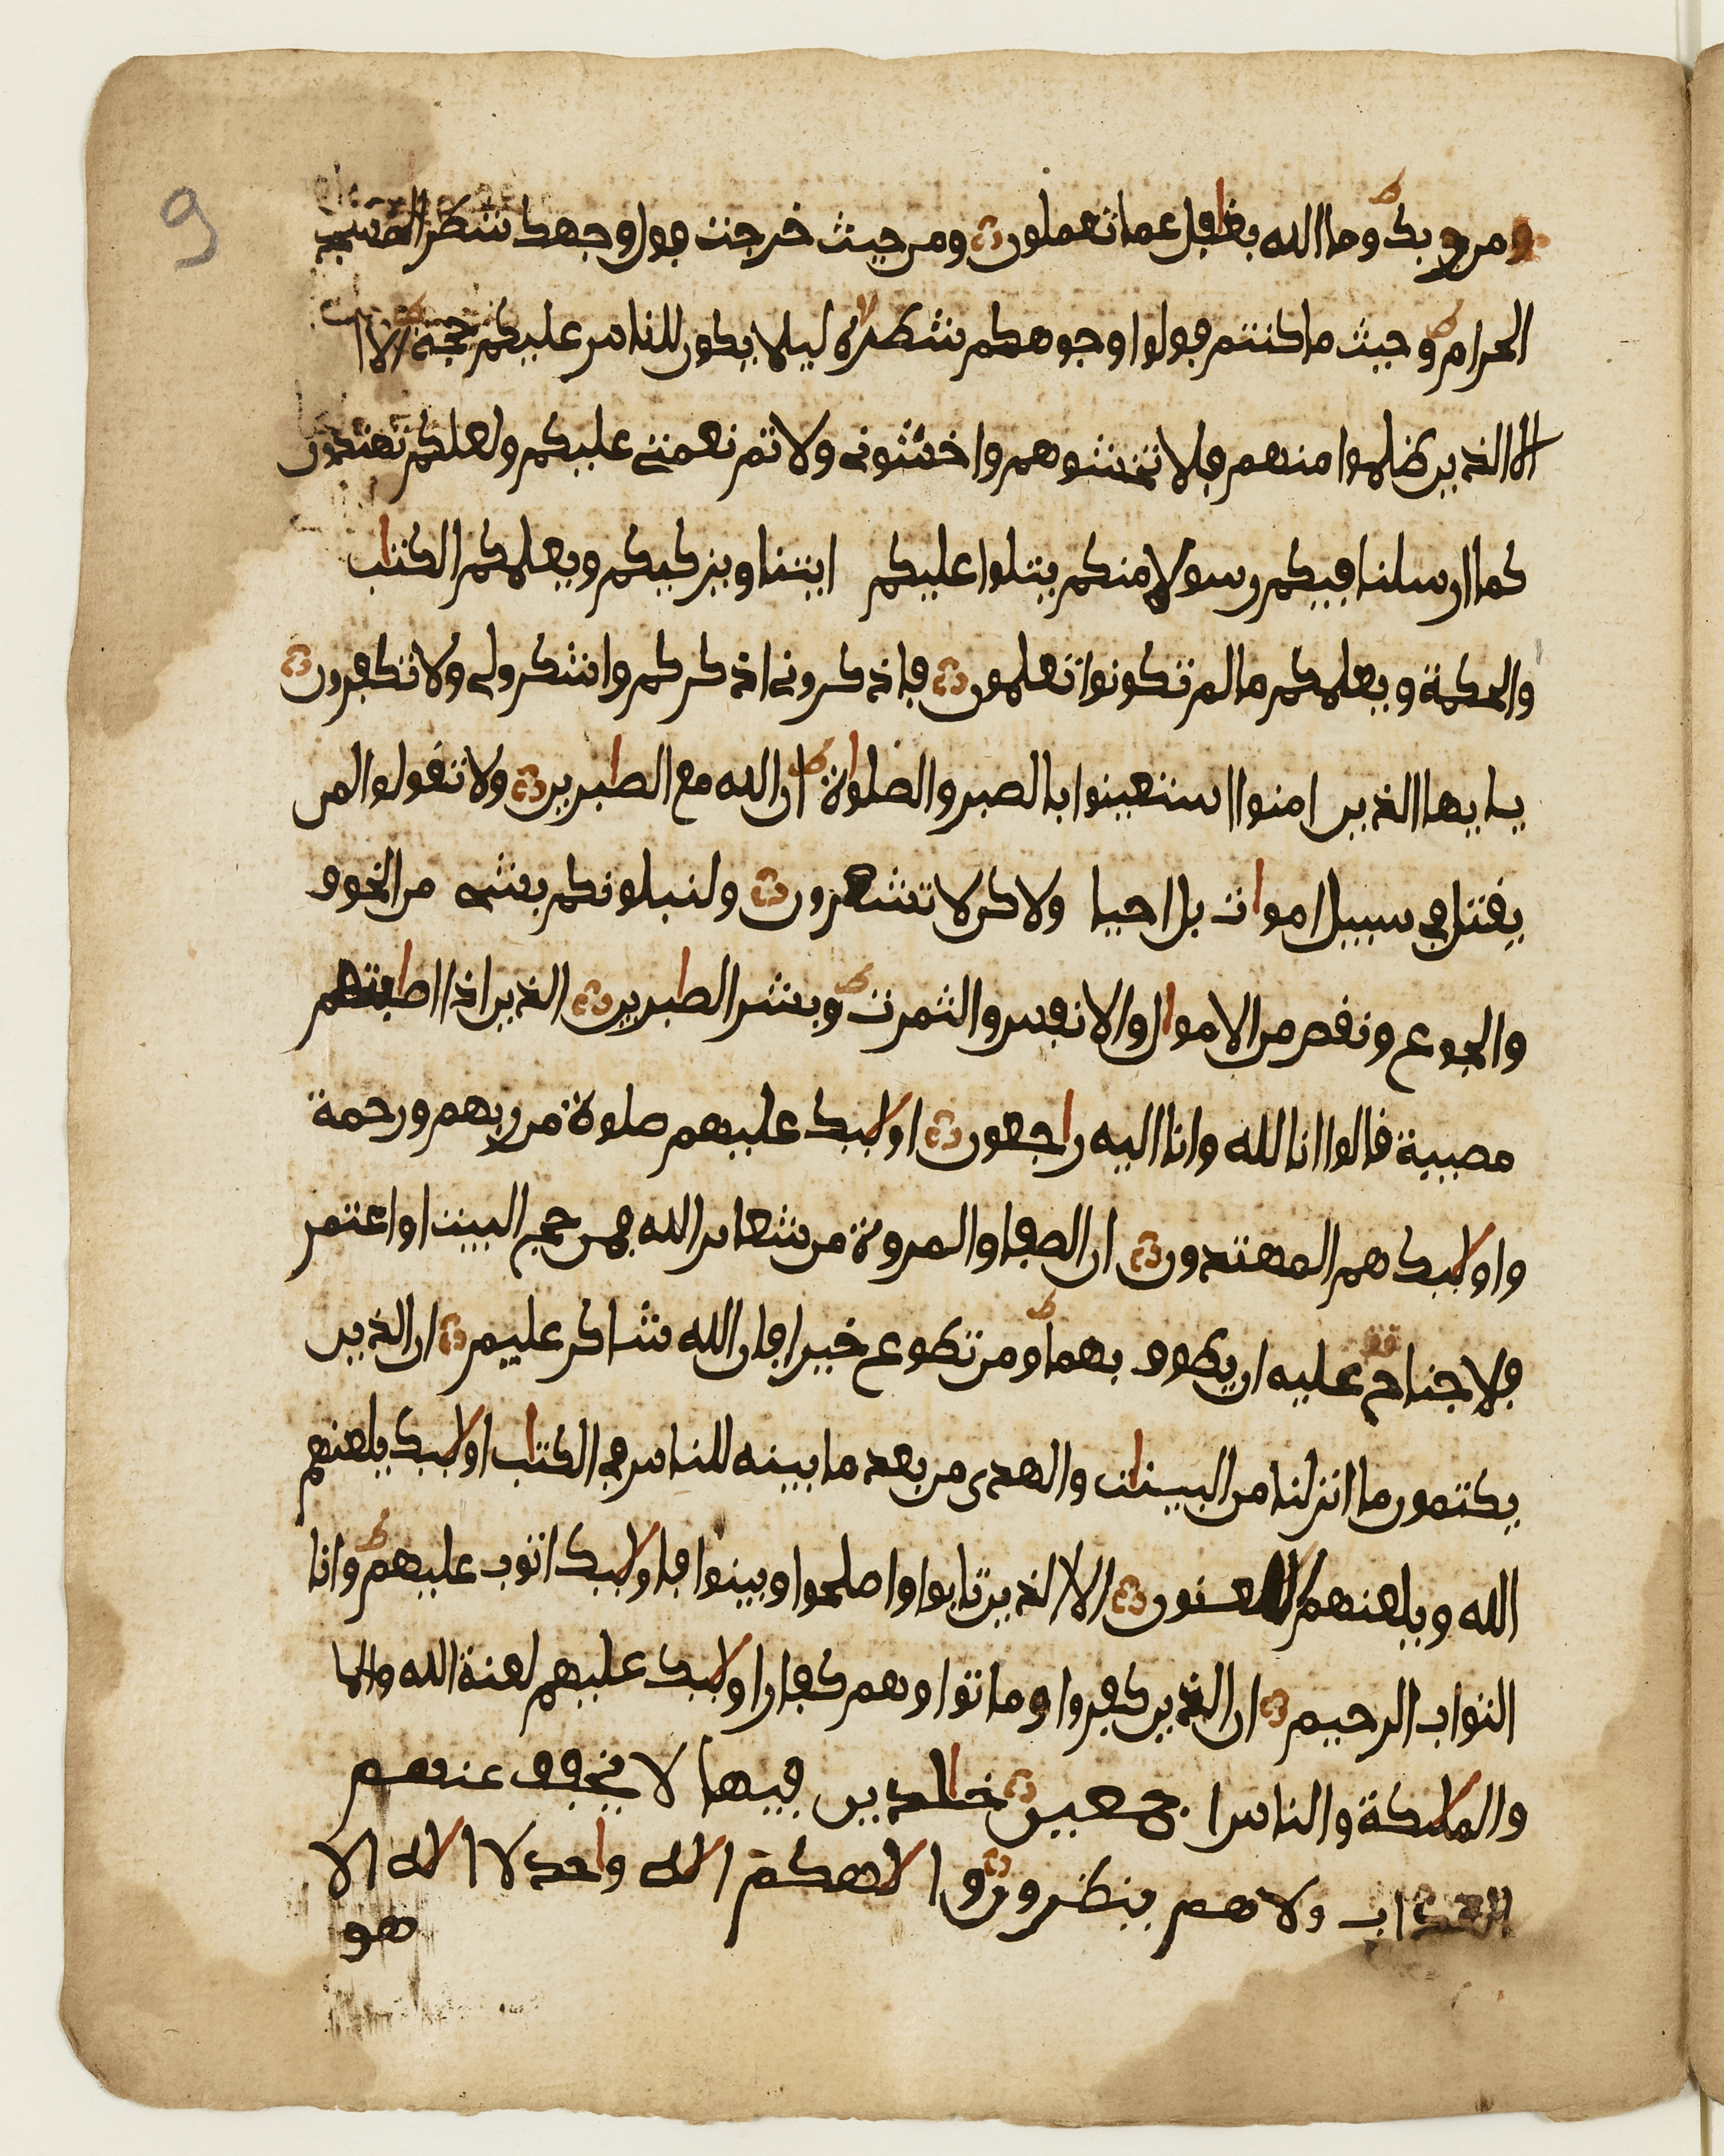 9
من ربك وما الله بغافل عما تعملون ومن حيث خرجت فول وجهك شطر المسجد
الحرام وحيث ما كنتم فولوا وجوهكم شطره ليلا يكون للناس عليكم حجة الا
الا الذين ظلموا منهم فلا تخشوهم واخشوني ولاتم نعمتي عليكم ولعلكم تهتدون
كما ارسلنا فيكم رسولا منكم يتلوا عليكم ايتنا ويزكيكم ويعلمكم الكتاب
والحكمة ويعلمكم ما لم تكونوا تعلمون فاذكروني اذكركم واشكرولي ولا تكفرون
يايها الذين امنوا استعينوا بالصبر والصلواة ان الله مع الصابرين ولا تقولوا لمن
يقتل في سبيل اموات بل احيا ولاكن لا تشعرون ولنبلونكم بشي من الخوف
والجوع ونقص من الاموال والانفس والثمرت وبشر الصابرين الذين اذا اصابتهم
مصيبة قالوا انا لله وانا اليه راجعون اولايك عليهم صلوة من ربهم ورحمة
واولايك هم المهتدون ان الصفا والمروة من شعاير الله فمن حج البيت او اعتمر
فلا جناح عليه ان يطوف بهما ومن تطوع خيرا فان الله شاكر عليم ان الذين
يكتمون ما انزلنا من البينات والهدى من بعد ما بينه للناس في الكتاب اولايك يلعنهم
الله ويلعنهم اللعنون الا الذين تابوا واصلحوا وبينوا فاولايك اتوب عليهم وانا
التواب الرحيم ان الذين كفروا وماتوا وهم كفار اولايك عليهم لعنة الله والما
والملايكة والناس اجمعين خالدين فيها لا يخفف عنهم
العذاب ولا هم ينظرون والاهكم الاه واحد لا الاه الا
هو